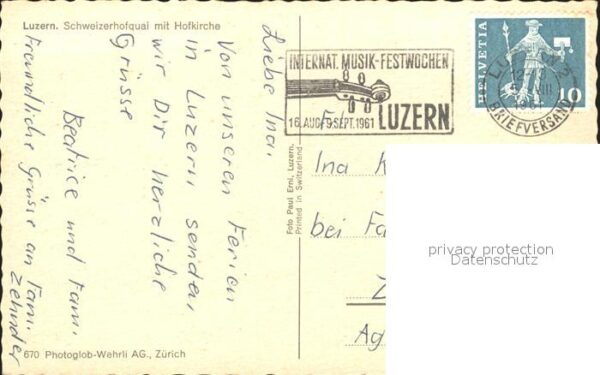 Luzern. Schweizerhofquai mit Hofkirche
Liebe Ina.
Von unseren Ferien
in Luzern senden
wir Dir herzliche
Grüsse
Beatrice und Fam.
Freundliche Grüsse an Fam.
Zehnder
670 Photoglob-Wehrli AG., Zürich
Foto Paul Erni, Luzern.
Printed in Switzerland
INTERNAT. MUSIK-FESTWOCHEN
16. AUG./9. SEPT. 1961 LUZERN
HELVETIA
10
LUZERN 2
1961
BRIEFVERSAND
Ina
bei Fa
Ag
privacy protection
Datenschutz